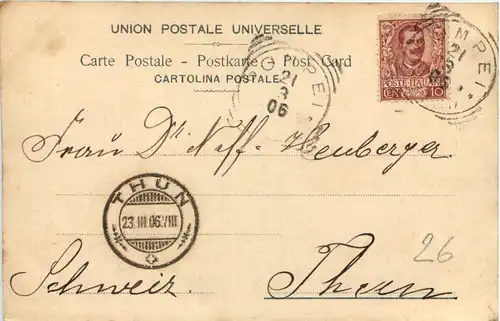 UNION POSTALE UNIVERSELLE
Carte Postale - Postkarte - Post Card
CARTOLINA POSTALE
POMPEI
21
3
06
POSTE ITALIANE
CEN 10
MPEI
21
Frau Dr. Naff-Heuberger.
THUN
23.III.06.VIII
26
Schweiz. Thun